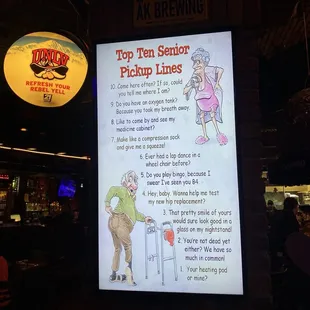 AK BREWING
REFRESH YOUR
REBEL YELL
Top Ten Senior
Pickup Lines
10. Come here often? If so, could
you tell me where I am?
9. Do you have an oxygen tank?
Because you took my breath away.
8. Like to come by and see my
medicine cabinet?
7. Make like a compression sock
and give me a squeeze!
6. Ever had a lap dance in a
wheel chair before?
5. Do you play bingo, because I
swear I've seen you B4
4. Hey, baby. Wanna help me test
my new hip replacement?
3. That pretty smile of yours
would sure look good in a
glass on my nightstand!
2. You're not dead yet
either? We have so
much in common!
1. Your heating pad
or mine?